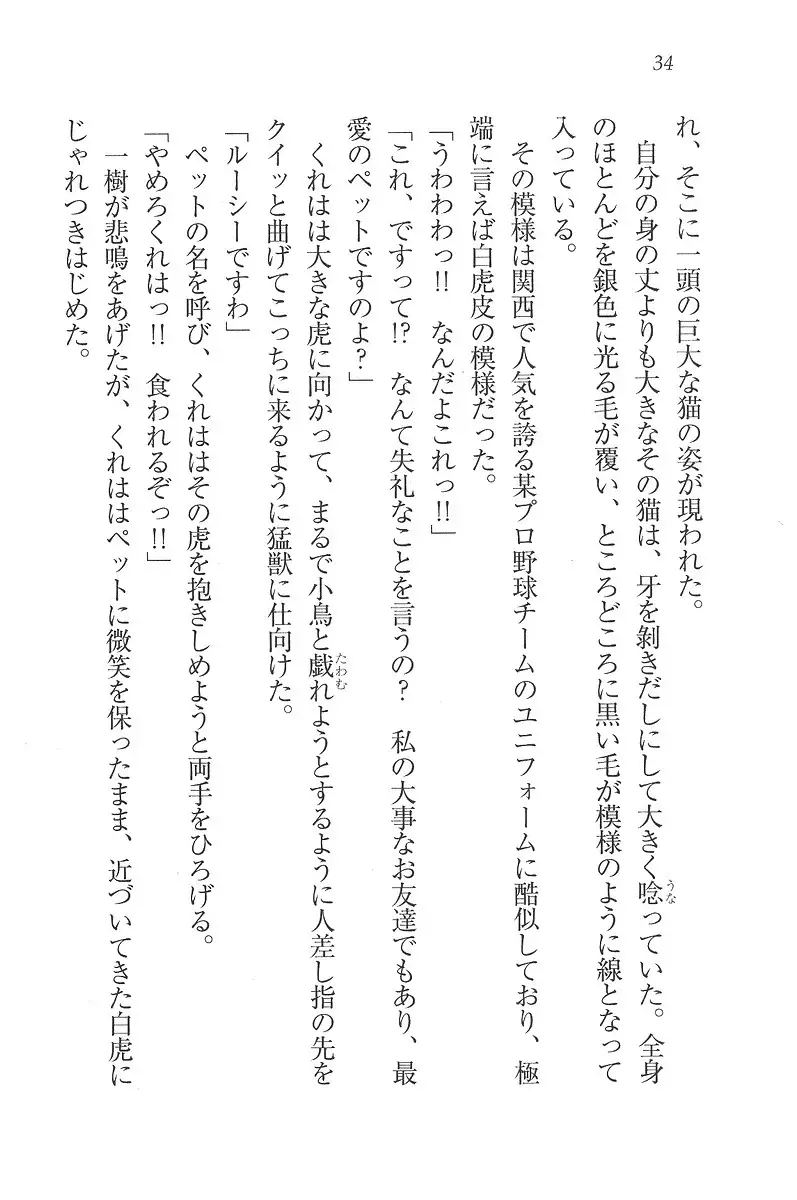 34
れ、そこに一頭の巨大な猫の姿が現われた。
　自分の身の丈よりも大きなその猫は、牙を剝きだしにして大きく唸っていた。全身
のほとんどを銀色に光る毛が覆い、ところどころに黒い毛が模様のように線となって
入っている。
　その模様は関西で人気を誇る某プロ野球チームのユニフォームに酷似しており、極
端に言えば白虎皮の模様だった。
「うわわわっ!!　なんだよこれっ!!」
「これ、ですって!?　なんて失礼なことを言うの？　私の大事なお友達でもあり、最
愛のペットですのよ？」
　くれはは大きな虎に向かって、まるで小鳥と戯れようとするように人差し指の先を
クイッと曲げてこっちに来るように猛獣に仕向けた。
「ルーシーですわ」
　ペットの名を呼び、くれははその虎を抱きしめようと両手をひろげる。
「やめろくれはっ!!　食われるぞっ!!」
　一樹が悲鳴をあげたが、くれははペットに微笑を保ったまま、近づいてきた白虎に
じゃれつきはじめた。